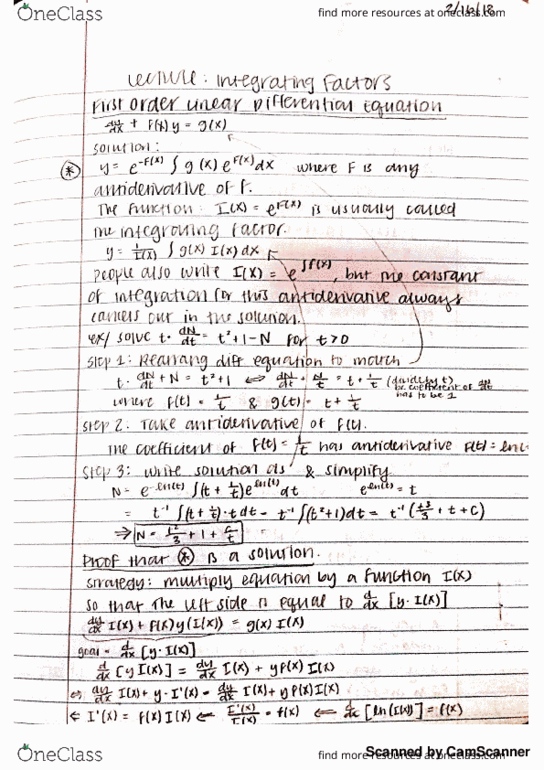 OneClass
find more resources at oneclass.com
2/16/18
Lecture: Integrating Factors
First Order Linear Differention Equation
dy/dx + f(x)y = g(x)
solution:
* y = e^-F(x) ∫ g(x) e^F(x) dx where F is any
antiderivative of f.
The function: I(x) = e^F(x) is usually called
the integrating factor.
y = 1/I(x) ∫ g(x) I(x) dx
people also write I(x) = e^∫f(x), but the constant
of integration for this antiderivative always
cancels out in the solution.
ex/ solve t· dN/dt = t²+1-N for t>0
Step 1: Rearrang diff equation to match
t· dN/dt + N = t²+1 ⟺ dN/dt + N/t = t + 1/t (divide by t)
coefficient of dN/dt
has to be 1
where f(t) = 1/t & g(t) = t + 1/t
step 2: Take antiderivative of f(t).
The coefficient of f(t) = 1/t has antiderivative F(t) = ln(
Step 3: write solution as & simplify
N = e^-ln(t) ∫(t + 1/t) e^ln(t) dt e^ln(t) = t
= t⁻¹ ∫(t + 1/t)·t dt = t⁻¹ ∫(t²+1)dt = t⁻¹ (t³/3 + t + C)
⇒ N = t²/3 + 1 + C/t
Proof that * is a solution.
strategy: multiply equation by a function I(x)
so that the left side is equal to d/dx [y·I(x)]
dy/dx I(x) + f(x)y(I(x)) = g(x) I(x)
goal = d/dx [y·I(x)]
d/dx [y I(x)] = dy/dx I(x) + y f(x) I(x)
⇔ dy/dx I(x) + y·I'(x) = dy/dx I(x) + y f(x) I(x)
⇐ I'(x) = f(x) I(x) ⇐ I'(x)/I(x) = f(x) ⇐ d/dx [ln(I(x))] = f(x)
Scanned by CamScanner
OneClass
find more resources at oneclass.com